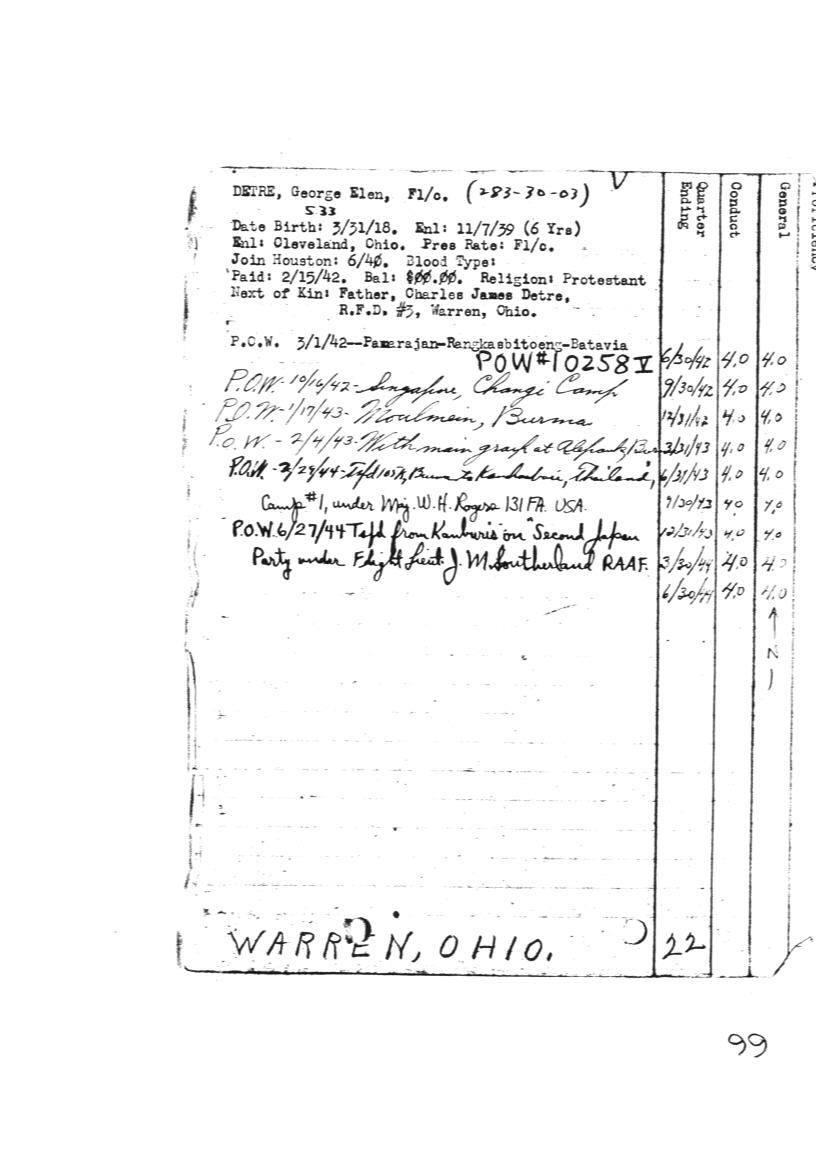 DETRE, George Elen, F1/c. (283-30-03)
533
Date Birth: 3/31/18. Enl: 11/7/39 (6 Yrs)
Enl: Cleveland, Ohio. Pres Rate: F1/c.
Join Houston: 6/40. Blood Type:
Paid: 2/15/42. Bal: $00.00. Religion: Protestant
Next of Kin: Father, Charles James Detre,
R.F.D. #3, Warren, Ohio.
Quarter Ending
Conduct
General
Proficiency
P.O.W. 3/1/42--Pamarajan-Rangkasbitoeng-Batavia
POW#10258 V 6/30/42 4.0 4.0
P.O.W. 10/16/42- Singapore, Changi Camp 9/30/42 4.0 4.0
P.O.W. 1/17/43- Moulmein, Burma 12/31/42 4.0 4.0
P.O.W. - 2/4/43- With main group at 3/31/43 4.0 4.0
P.O.W. - 2/29/44- Tsfd 105 K, Burma to Thailand, 6/31/43 4.0 4.0
Camp #1, under Maj. W. H. Rogers 131 FA. USA. 9/30/43 4.0 4.0
P.O.W. 6/27/44 Tsfd from Kanburi on "Second Japan 12/31/43 4.0 4.0
Party under Flight Lieut. J. M. Southerland RAAF. 3/30/44 4.0 4.0
6/30/44 4.0 4.0
WARREN, OHIO. 22
99